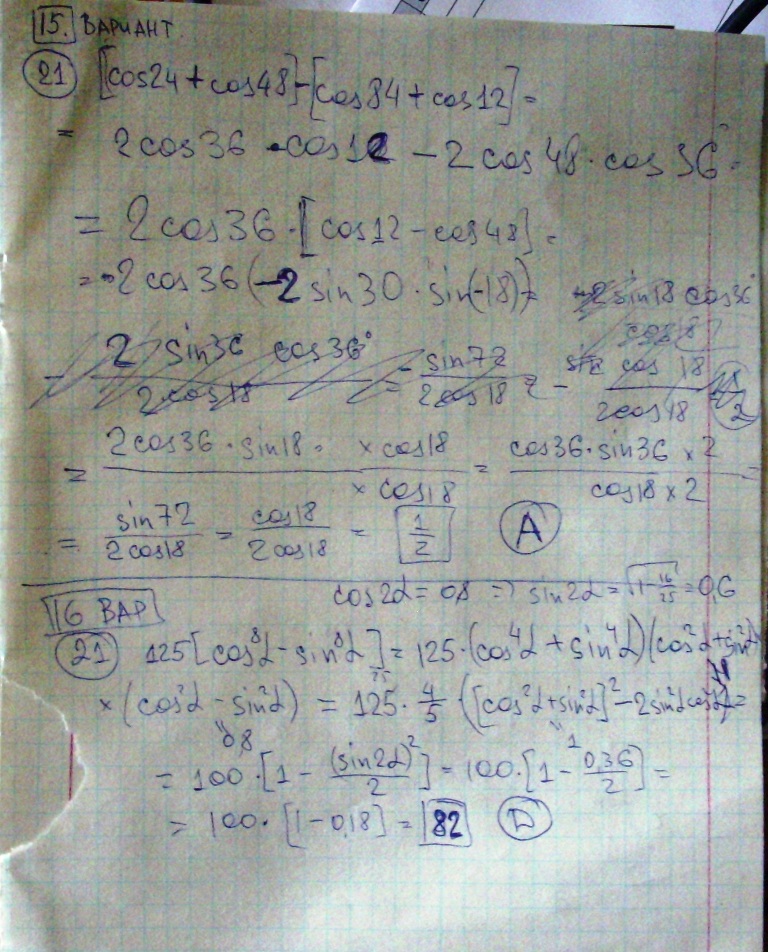 15. ВАРИАНТ
21 [cos24 + cos48] - [cos84 + cos12] =
= 2cos36 · cos12 - 2cos48 · cos36 =
= 2cos36 · [cos12 - cos48] =
= 2cos36 (-2 sin30 · sin(-18)) = 2 sin18 cos36°
- 2 sin36 cos36° / 2cos18 = - sin72 / 2cos18 = - cos18 / 2cos18
= 2cos36 · sin18 · × cos18 / × cos18 = cos36 · sin36 × 2 / cos18 × 2 =
= sin72 / 2cos18 = cos18 / 2cos18 = 1/2 A
cos2α = 0,8 => sin2α = √1 - 16/25 = 0,6
16 ВАР
21 125[cos⁸α - sin⁸α] = 125 · (cos⁴α + sin⁴α)(cos²α + sin²α)
× (cos²α - sin²α) = 125 · 4/5 ([cos²α + sin²α]² - 2sin²α cos²α) =
0,8 1
= 100 · [1 - (sin2α)² / 2] = 100 · [1 - 0,36 / 2] =
= 100 · [1 - 0,18] = 82 D